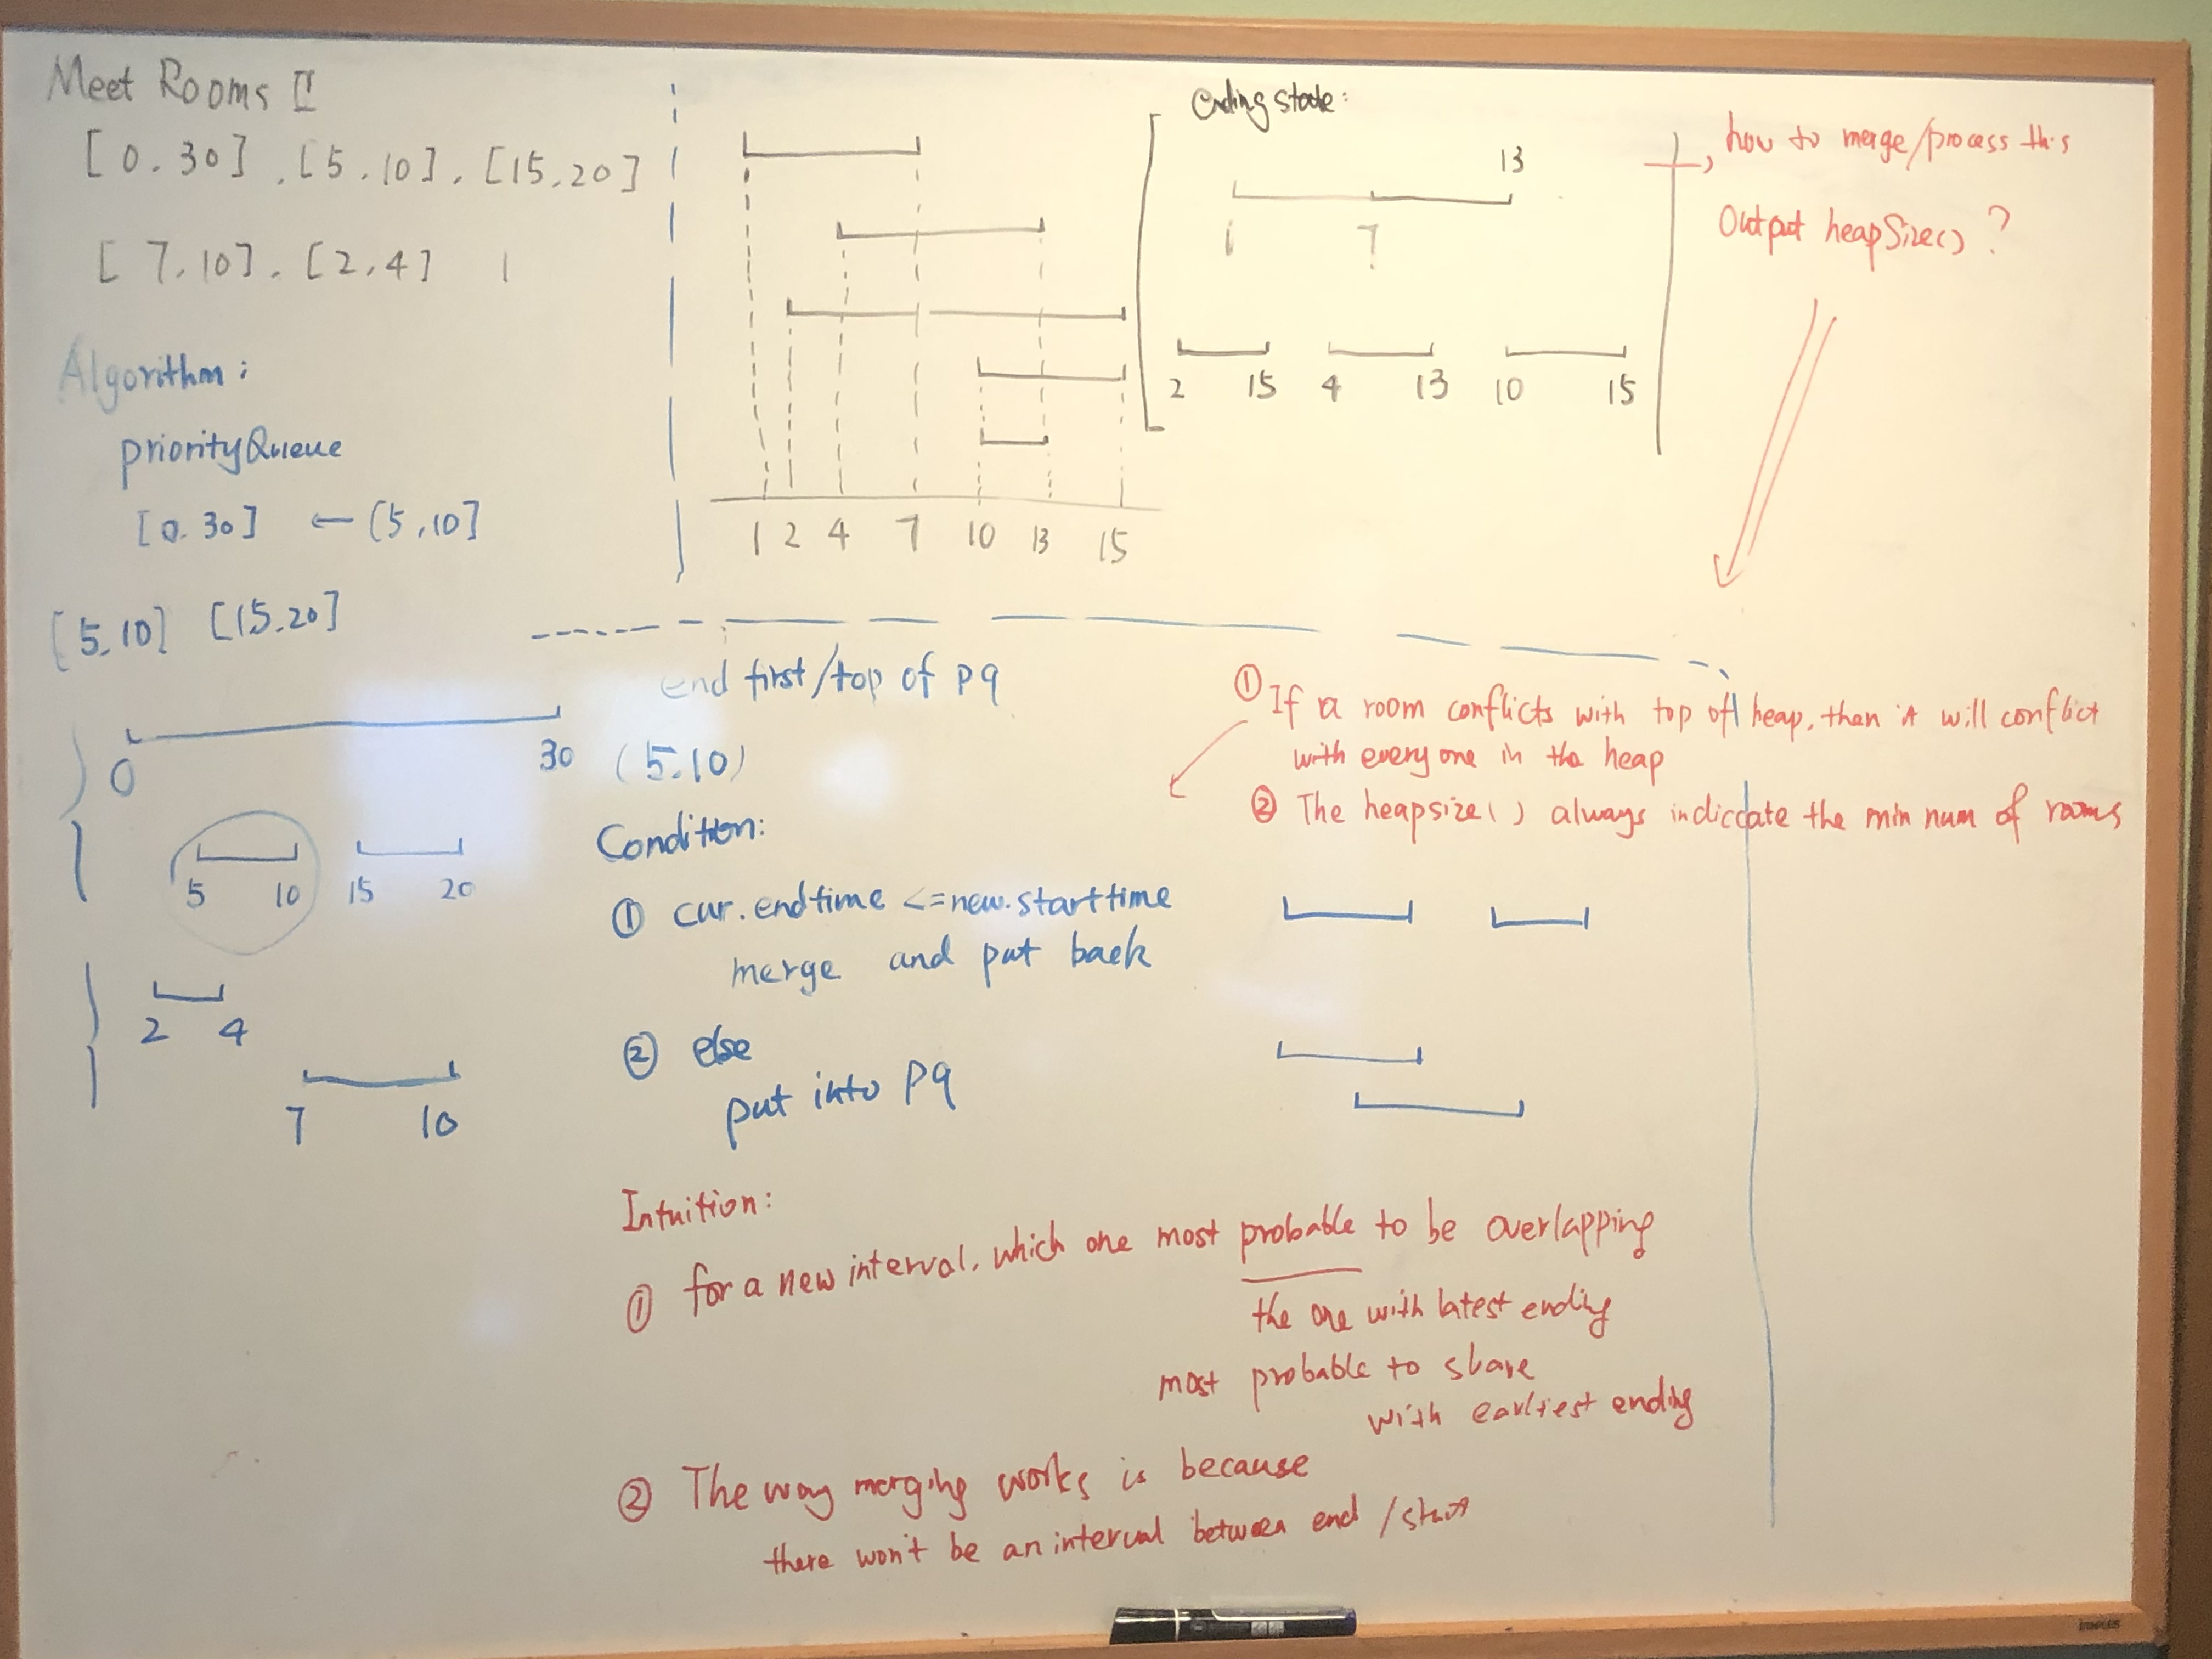 Meet Rooms II
[0.30], [5.10], [15,20]
[7,10], [2,4] 1
Algorithm:
priorityQueue
[0.30] ← (5,10]
[5,10] [15.20]
0 30
5 10 15 20
2 4
7 10
1 2 4 7 10 13 15
Ending state:
13
1 7
2 15 4 13 10 15
how to merge/process this
Output heapSize() ?
end first/top of pq
(5.10)
Condition:
① cur.endtime <=new.starttime
merge and put back
② else
put into pq
① If a room conflicts with top of heap, then it will conflict
with everyone in the heap
② The heapsize() always indiccate the min num of rooms
Intuition:
① for a new interval, which one most probable to be overlapping
the one with latest ending
most probable to share
with earliest ending
② The way merging works is because
there won't be an interval between end /start